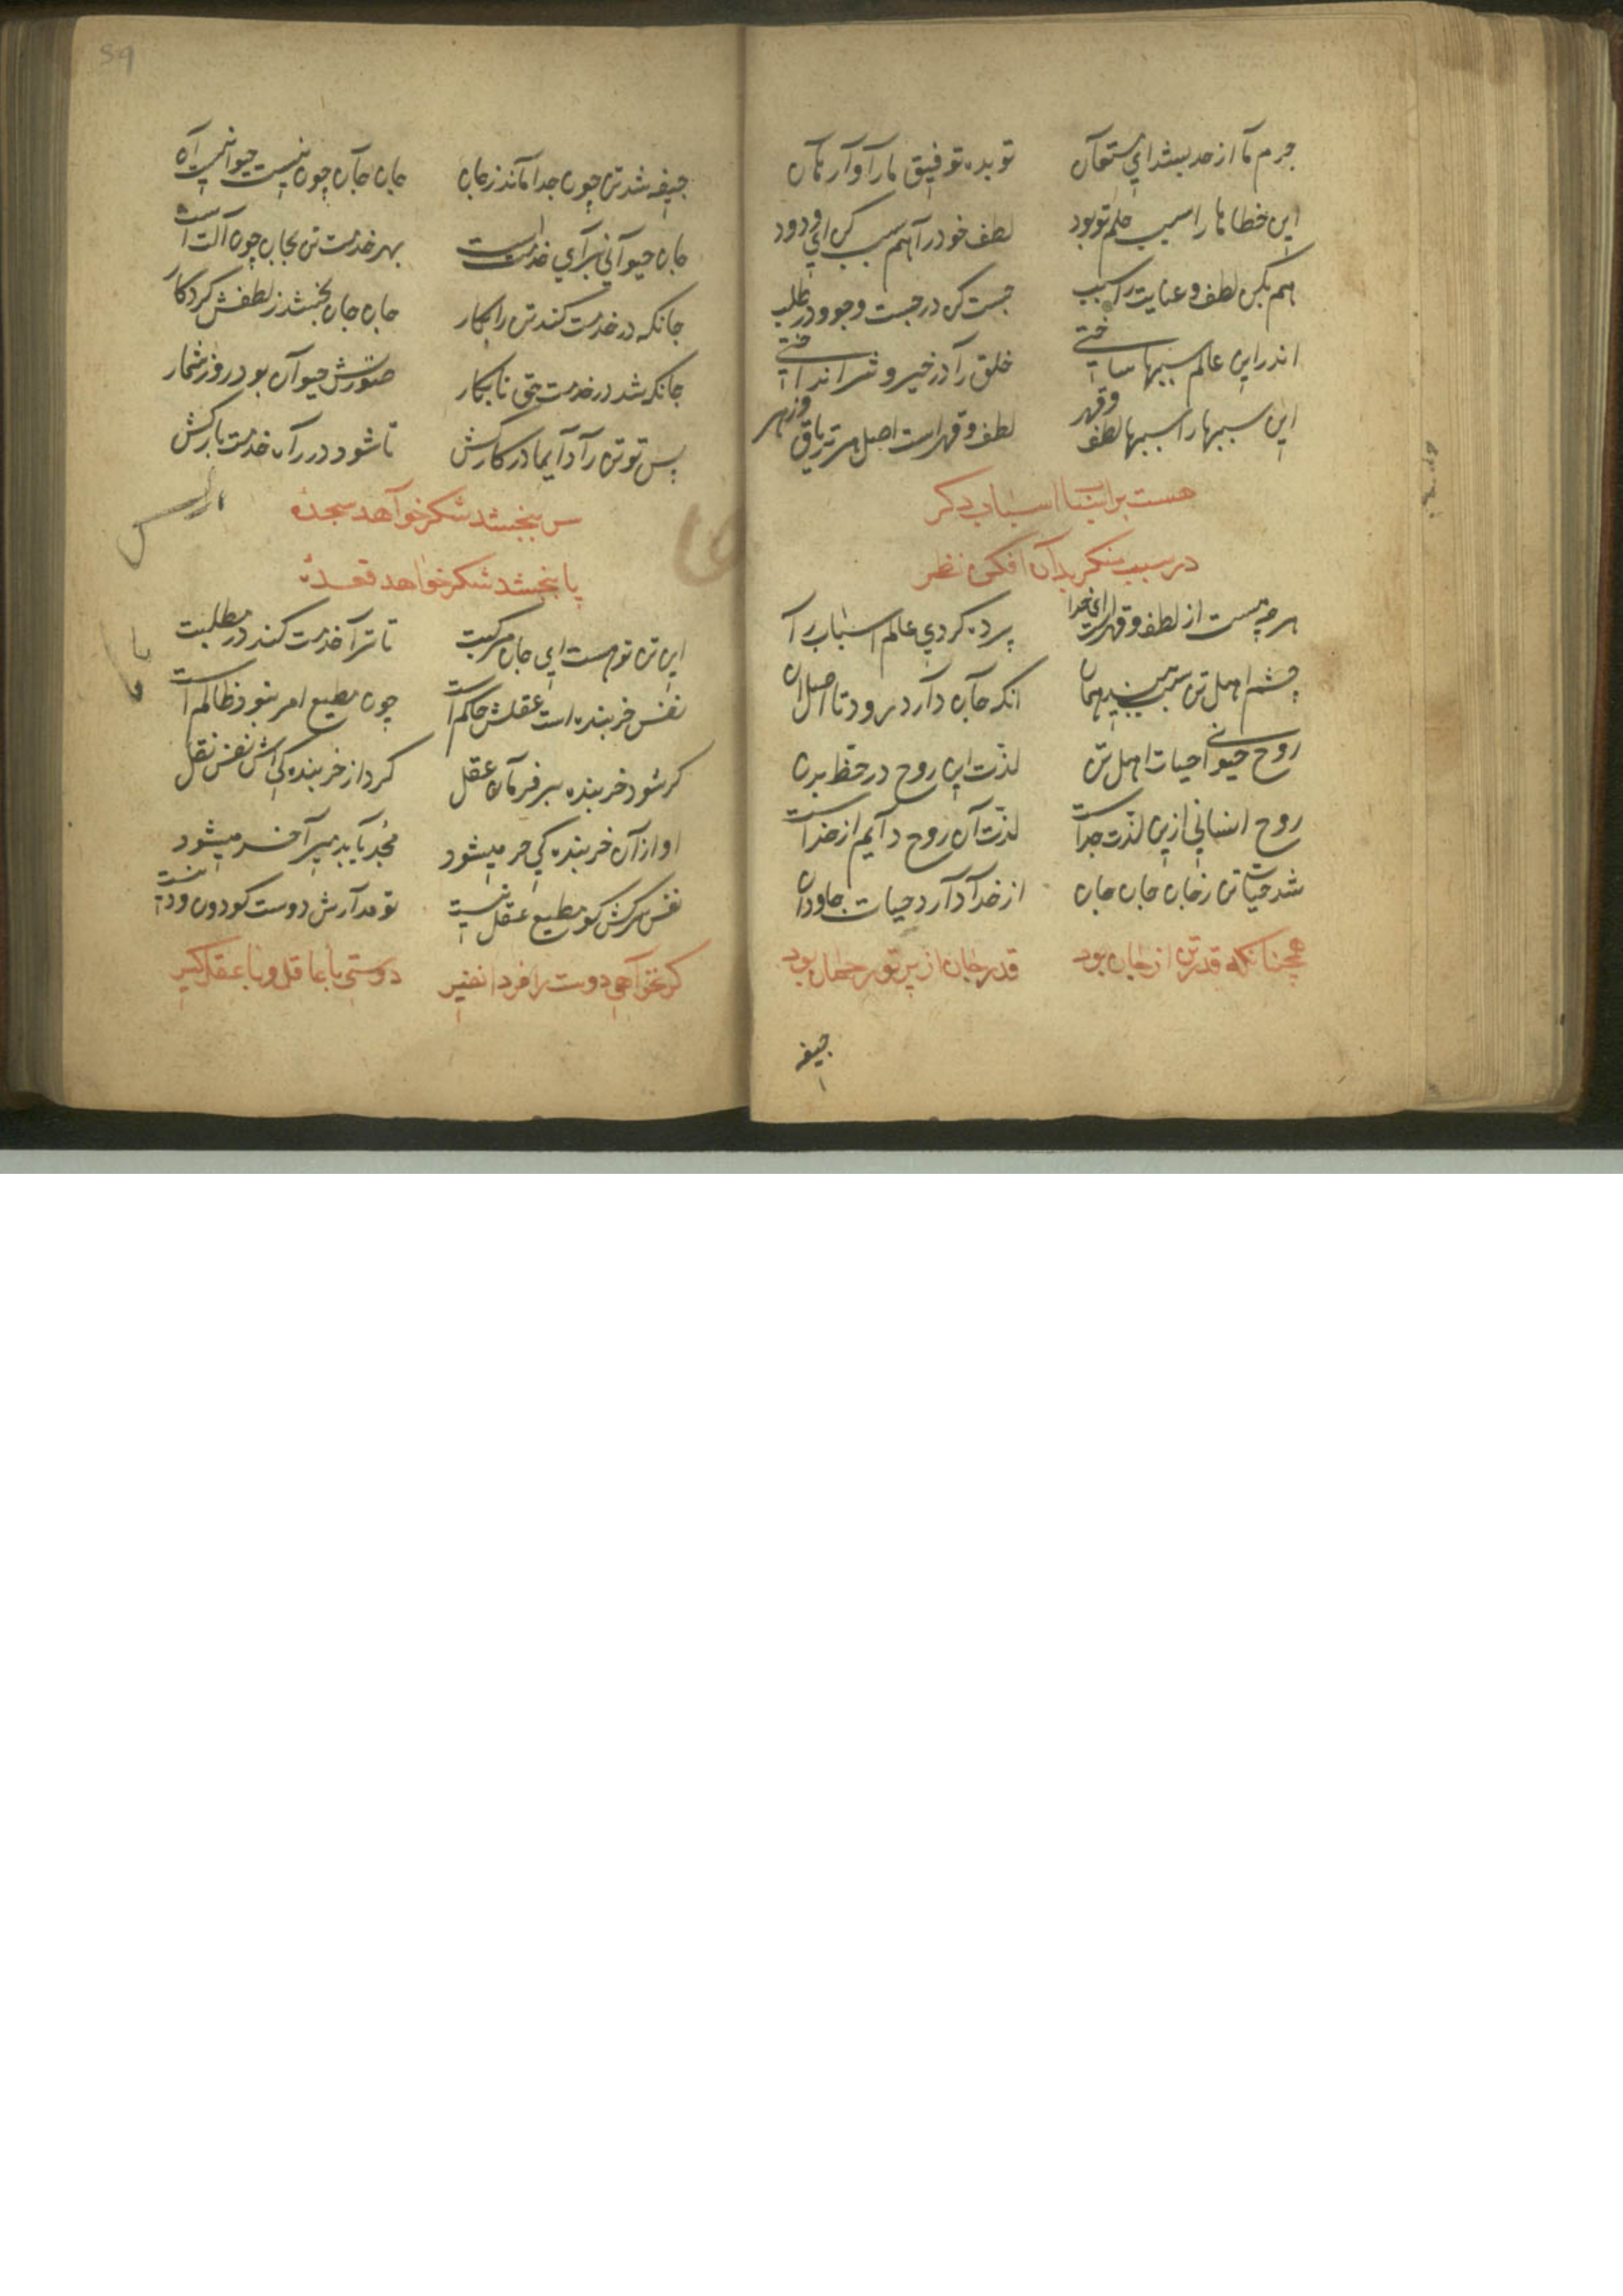 جرم ما از حد بشد ای مستعان
تو بده توفیق ما را و آر مان
این خطاها را سبب حلم تو بود
لطف خود را هم سبب کن ای ودود
هم بکن لطف و عنایت را سبب
جست کن در جست و جو و در طلب
اندر این عالم سببها ساختی
خلق را در خیر و شر انداختی
این سببها را سببها لطف و قهر
لطف و قهر است اصل هر تریاق و زهر
هست بر اینها اسباب دکر
در سبب منکر بدان افکن نظر
هر چه هست از لطف و قهرت ای خدا
پرده کردی عالم اسباب را
چشم اهل تن سبب بیند همان
انکه جان دارد رود تا اصل آن
روح حیوانی حیات اهل تن
لذت این روح در حظ بدن
روح انسانی ازین لذت جداست
لذت آن روح دایم از خداست
شد حیات تن ز جان جان جان
از خدا دارد حیات جاودان
همچنانکه قدر تن از جان بود
قدر جان از پرتو رحمان بود
جیفه
59
جیفه شد تن چون جدا ماند ز جان
جان جان چون نیست حیوانیست آن
جان حیوانی برای خدمت است
بهر خدمت تن بجان چون آلت است
جانکه در خدمت کند تن را بکار
جان جان بخشد ز لطفش کردکار
جانکه شد در خدمت حق نابکار
صورتش حیوان بود روز شمار
پس تو تن را دایما در کار کش
تا شود در راه خدمت بارکش
سر ببخشد شکر خواهد سجده
پا ببخشد شکر خواهد قعده
این تن تو هست ای جان مرکبت
تا ترا خدمت کند در مطلبت
نفس خربنده است عقلش حاکم است
چون مطیع امر نبود ظالم است
کر شود خربنده بر فرمان عقل
کرد از خربنده کی اش نفس نقل
او از آن خربنده کی حر میشود
میر آخر میشود
نفس سرکش کو مطیع عقل نیست
تو مدارش دوست کو دون و دنیست
کر نخواهی دوست را فردا نفیر
دوستی با عاقل و با عقل کیر